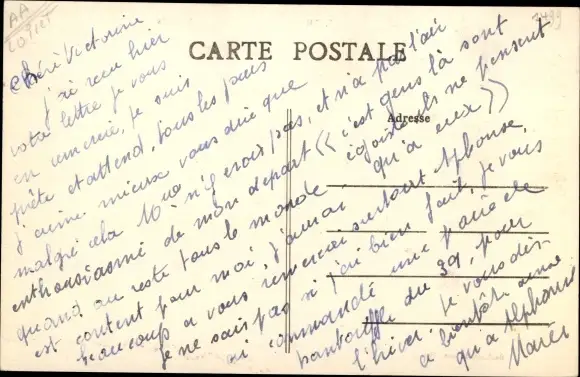 AA
LOIRET
CARTE POSTALE
Adresse
Chère Victorine
j'ai recu hier
votre lettre je vous
en remercie, je suis
prête et attend, tous les jours
j'aime mieux vous dire que
malgré cela Mme n'y crois pas, et n'a pas l'air
enthousiasmé de mon départ « c'est gens là sont
égoïste ils ne pensent
qu'a eux »
quand au reste tous le monde
est content pour moi, j'aurai
beaucoup a vous remercier surtout Alphonse,
je ne sais pas si j'ai bien fait, je vous
ai commandé une paire de
pantouffle du 39, pour
l'hiver. Je vous dis
a bientôt
qu'a Alphonse